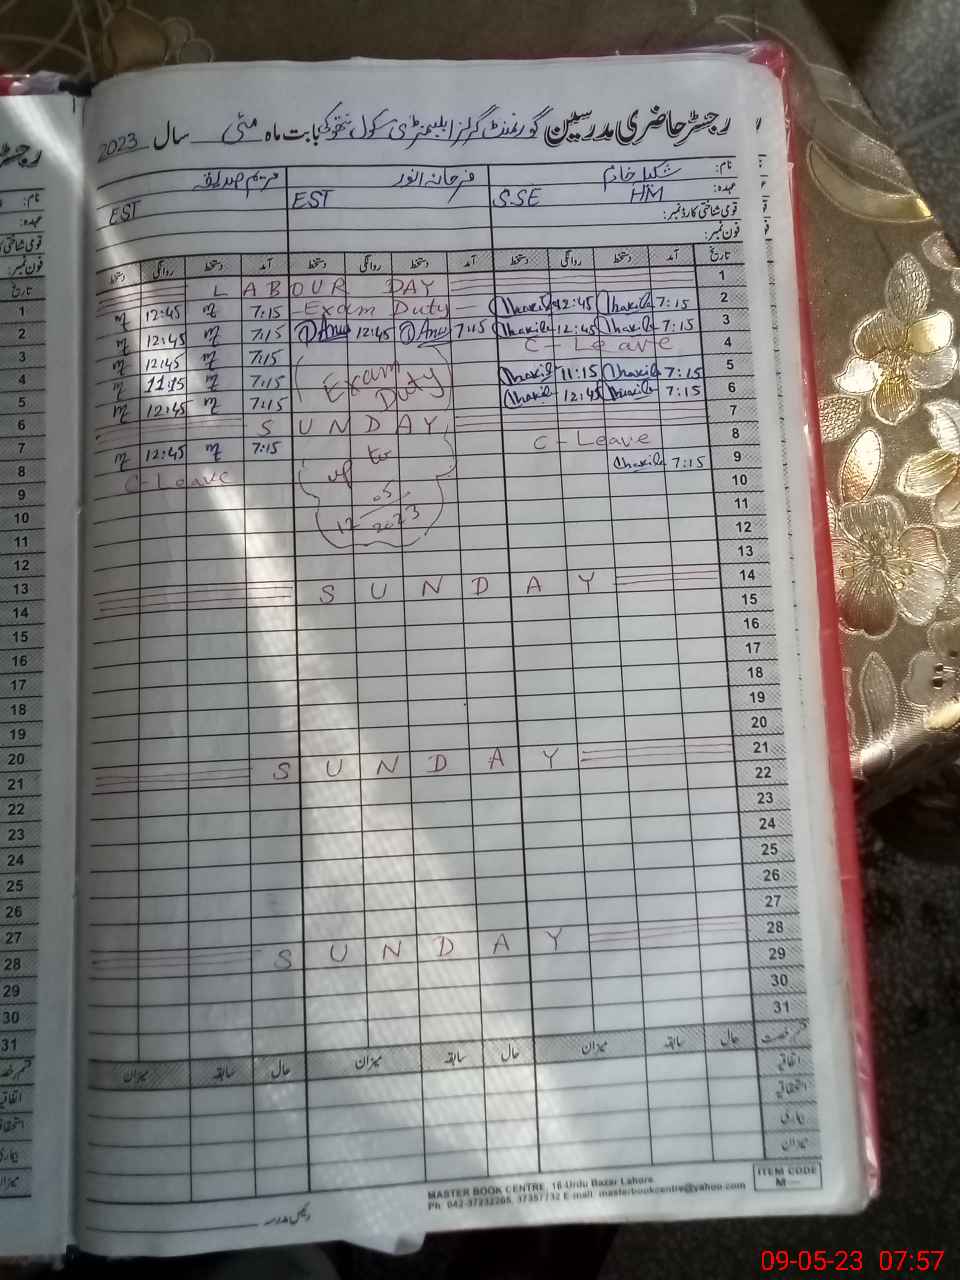 رجسٹر حاضری مدرسین گورنمنٹ گرلز ایلیمنٹری سکول بابت ماہ مئی سال 2023
نام: شکیلہ خادم فرحانہ انور مریم صدیقہ
عہدہ: HM S.SE EST EST
قومی شناختی کارڈ نمبر:
فون نمبر:
تاریخ آمد دستخط روانگی دستخط آمد دستخط روانگی دستخط آمد دستخط روانگی دستخط
1 LABOUR DAY
2 7:15 Shakila 12:45 Shakila Exam Duty 7:15 12:45
3 7:15 Shakila 12:45 Shakila 7:15 12:45 7:15 12:45
4 C-Leave 7:15 12:45
5 7:15 Shakila 11:15 Shakila Exam Duty 7:15 11:15
6 7:15 Shakila 12:45 Shakila 7:15 12:45
7 SUNDAY
8 C-Leave up to 7:15 12:45
9 7:15 Shakila C-Leave
10 12 05 2023
11
12
13
14 SUNDAY
15
16
17
18
19
20
21 SUNDAY
22
23
24
25
26
27
28 SUNDAY
29
30
31
حال سابقہ میزان حال سابقہ میزان حال سابقہ میزان
اتفاقیہ
استحقاقیہ
بیماری
میزان
رئیس مدرسہ
MASTER BOOK CENTRE, 16-Urdu Bazar Lahore.
Ph: 042-37232265, 37357732 E-mail: masterbookcentre@yahoo.com
ITEM CODE
M—
رجسٹر
نام:
عہدہ:
قومی شناختی کارڈ
فون نمبر:
تاریخ
1
2
3
4
5
6
7
8
9
10
11
12
13
14
15
16
17
18
19
20
21
22
23
24
25
26
27
28
29
30
31
09-05-23 07:57